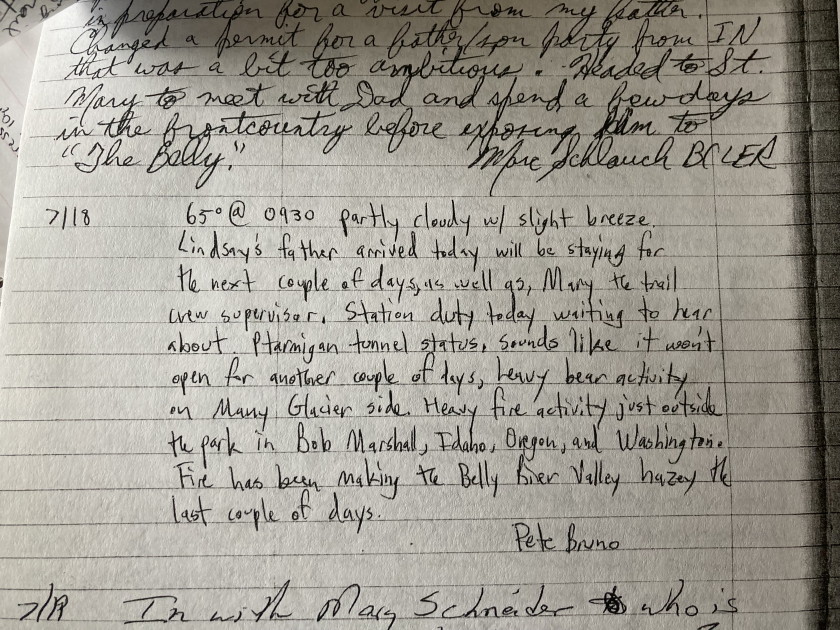 in preparation for a visit from my father.
Changed a permit for a father/son party from IN
that was a bit too ambitious. Headed to St.
Mary to meet with Dad and spend a few days
in the frontcountry before exposing him to
"The Belly." Marc Schlauch BCLER
7/18 65° @ 0930 partly cloudy w/ slight breeze.
Lindsay's father arrived today will be staying for
the next couple of days, as well as, Mary the trail
crew supervisor. Station duty today waiting to hear
about Ptarmigan tunnel status, sounds like it won't
open for another couple of days, heavy bear activity
on Many Glacier side. Heavy fire activity just outside
the park in Bob Marshall, Idaho, Oregon, and Washington.
Fire has been making the Belly River Valley hazey the
last couple of days.
Pete Bruno
7/19 In with Mary Schneider who is